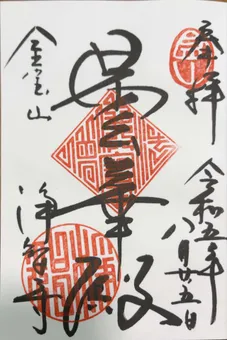 奉拝
令和五年
八月廿五日
曇華殿
金宝山
浄智寺